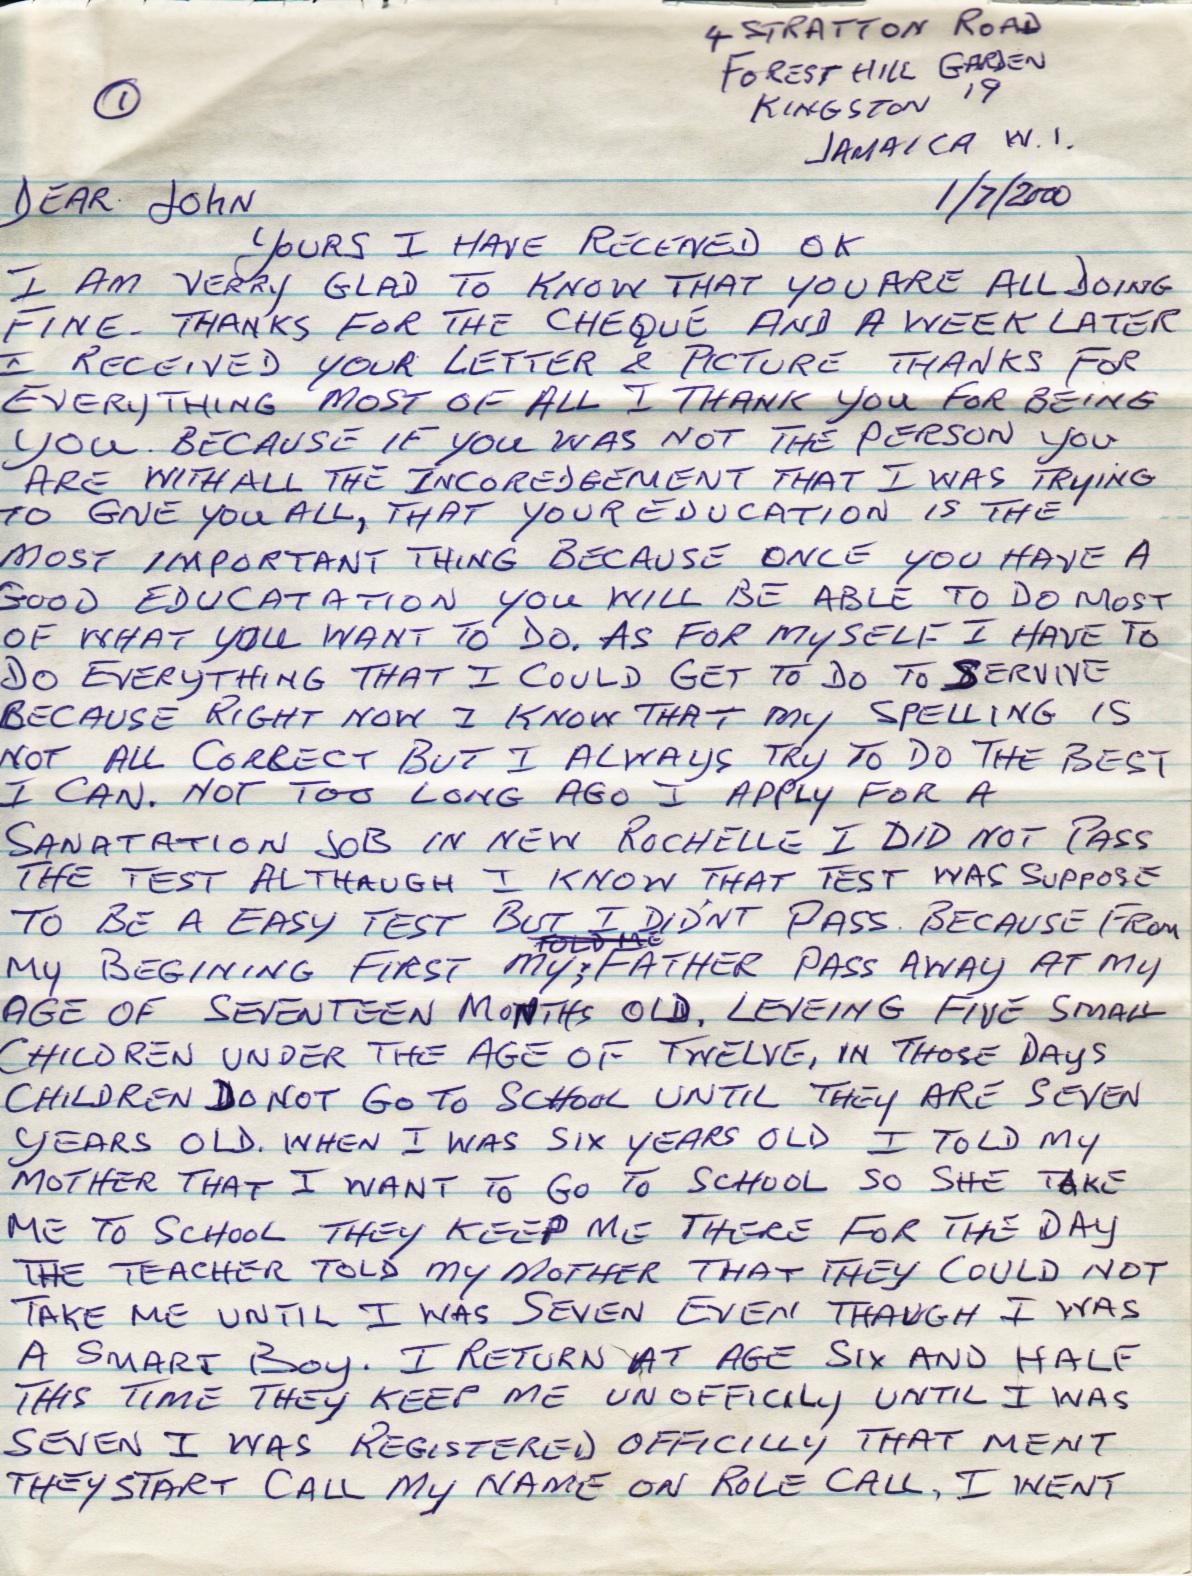 4 STRATTON ROAD
FOREST HILL GARDEN
KINGSTON 19
JAMAICA W.I.
1
1/7/2000
DEAR JOHN
YOURS I HAVE RECEIVED OK
I AM VERRY GLAD TO KNOW THAT YOU ARE ALL DOING
FINE. THANKS FOR THE CHEQUE AND A WEEK LATER
I RECEIVED YOUR LETTER & PICTURE THANKS FOR
EVERYTHING MOST OF ALL I THANK YOU FOR BEING
YOU. BECAUSE IF YOU WAS NOT THE PERSON YOU
ARE WITH ALL THE INCOREDGEMENT THAT I WAS TRYING
TO GIVE YOU ALL, THAT YOUR EDUCATION IS THE
MOST IMPORTANT THING BECAUSE ONCE YOU HAVE A
GOOD EDUCATATION YOU WILL BE ABLE TO DO MOST
OF WHAT YOU WANT TO DO. AS FOR MYSELF I HAVE TO
DO EVERYTHING THAT I COULD GET TO DO TO SERVIVE
BECAUSE RIGHT NOW I KNOW THAT MY SPELLING IS
NOT ALL CORRECT BUT I ALWAYS TRY TO DO THE BEST
I CAN. NOT TOO LONG AGO I APPLY FOR A
SANATATION JOB IN NEW ROCHELLE I DID NOT PASS
THE TEST ALTHAUGH I KNOW THAT TEST WAS SUPPOSE
TO BE A EASY TEST BUT I DIDN'T PASS. BECAUSE FROM
TOLD ME
MY BEGINING FIRST MY FATHER PASS AWAY AT MY
AGE OF SEVENTEEN MONTHS OLD, LEVEING FIVE SMALL
CHILDREN UNDER THE AGE OF TWELVE, IN THOSE DAYS
CHILDREN DO NOT GO TO SCHOOL UNTIL THEY ARE SEVEN
YEARS OLD. WHEN I WAS SIX YEARS OLD I TOLD MY
MOTHER THAT I WANT TO GO TO SCHOOL SO SHE TAKE
ME TO SCHOOL THEY KEEP ME THERE FOR THE DAY
THE TEACHER TOLD MY MOTHER THAT THEY COULD NOT
TAKE ME UNTIL I WAS SEVEN EVEN THAUGH I WAS
A SMART BOY. I RETURN AT AGE SIX AND HALF
THIS TIME THEY KEEP ME UNOFFICILY UNTIL I WAS
SEVEN I WAS REGISTERED OFFICILLY THAT MENT
THEY START CALL MY NAME ON ROLE CALL, I WENT